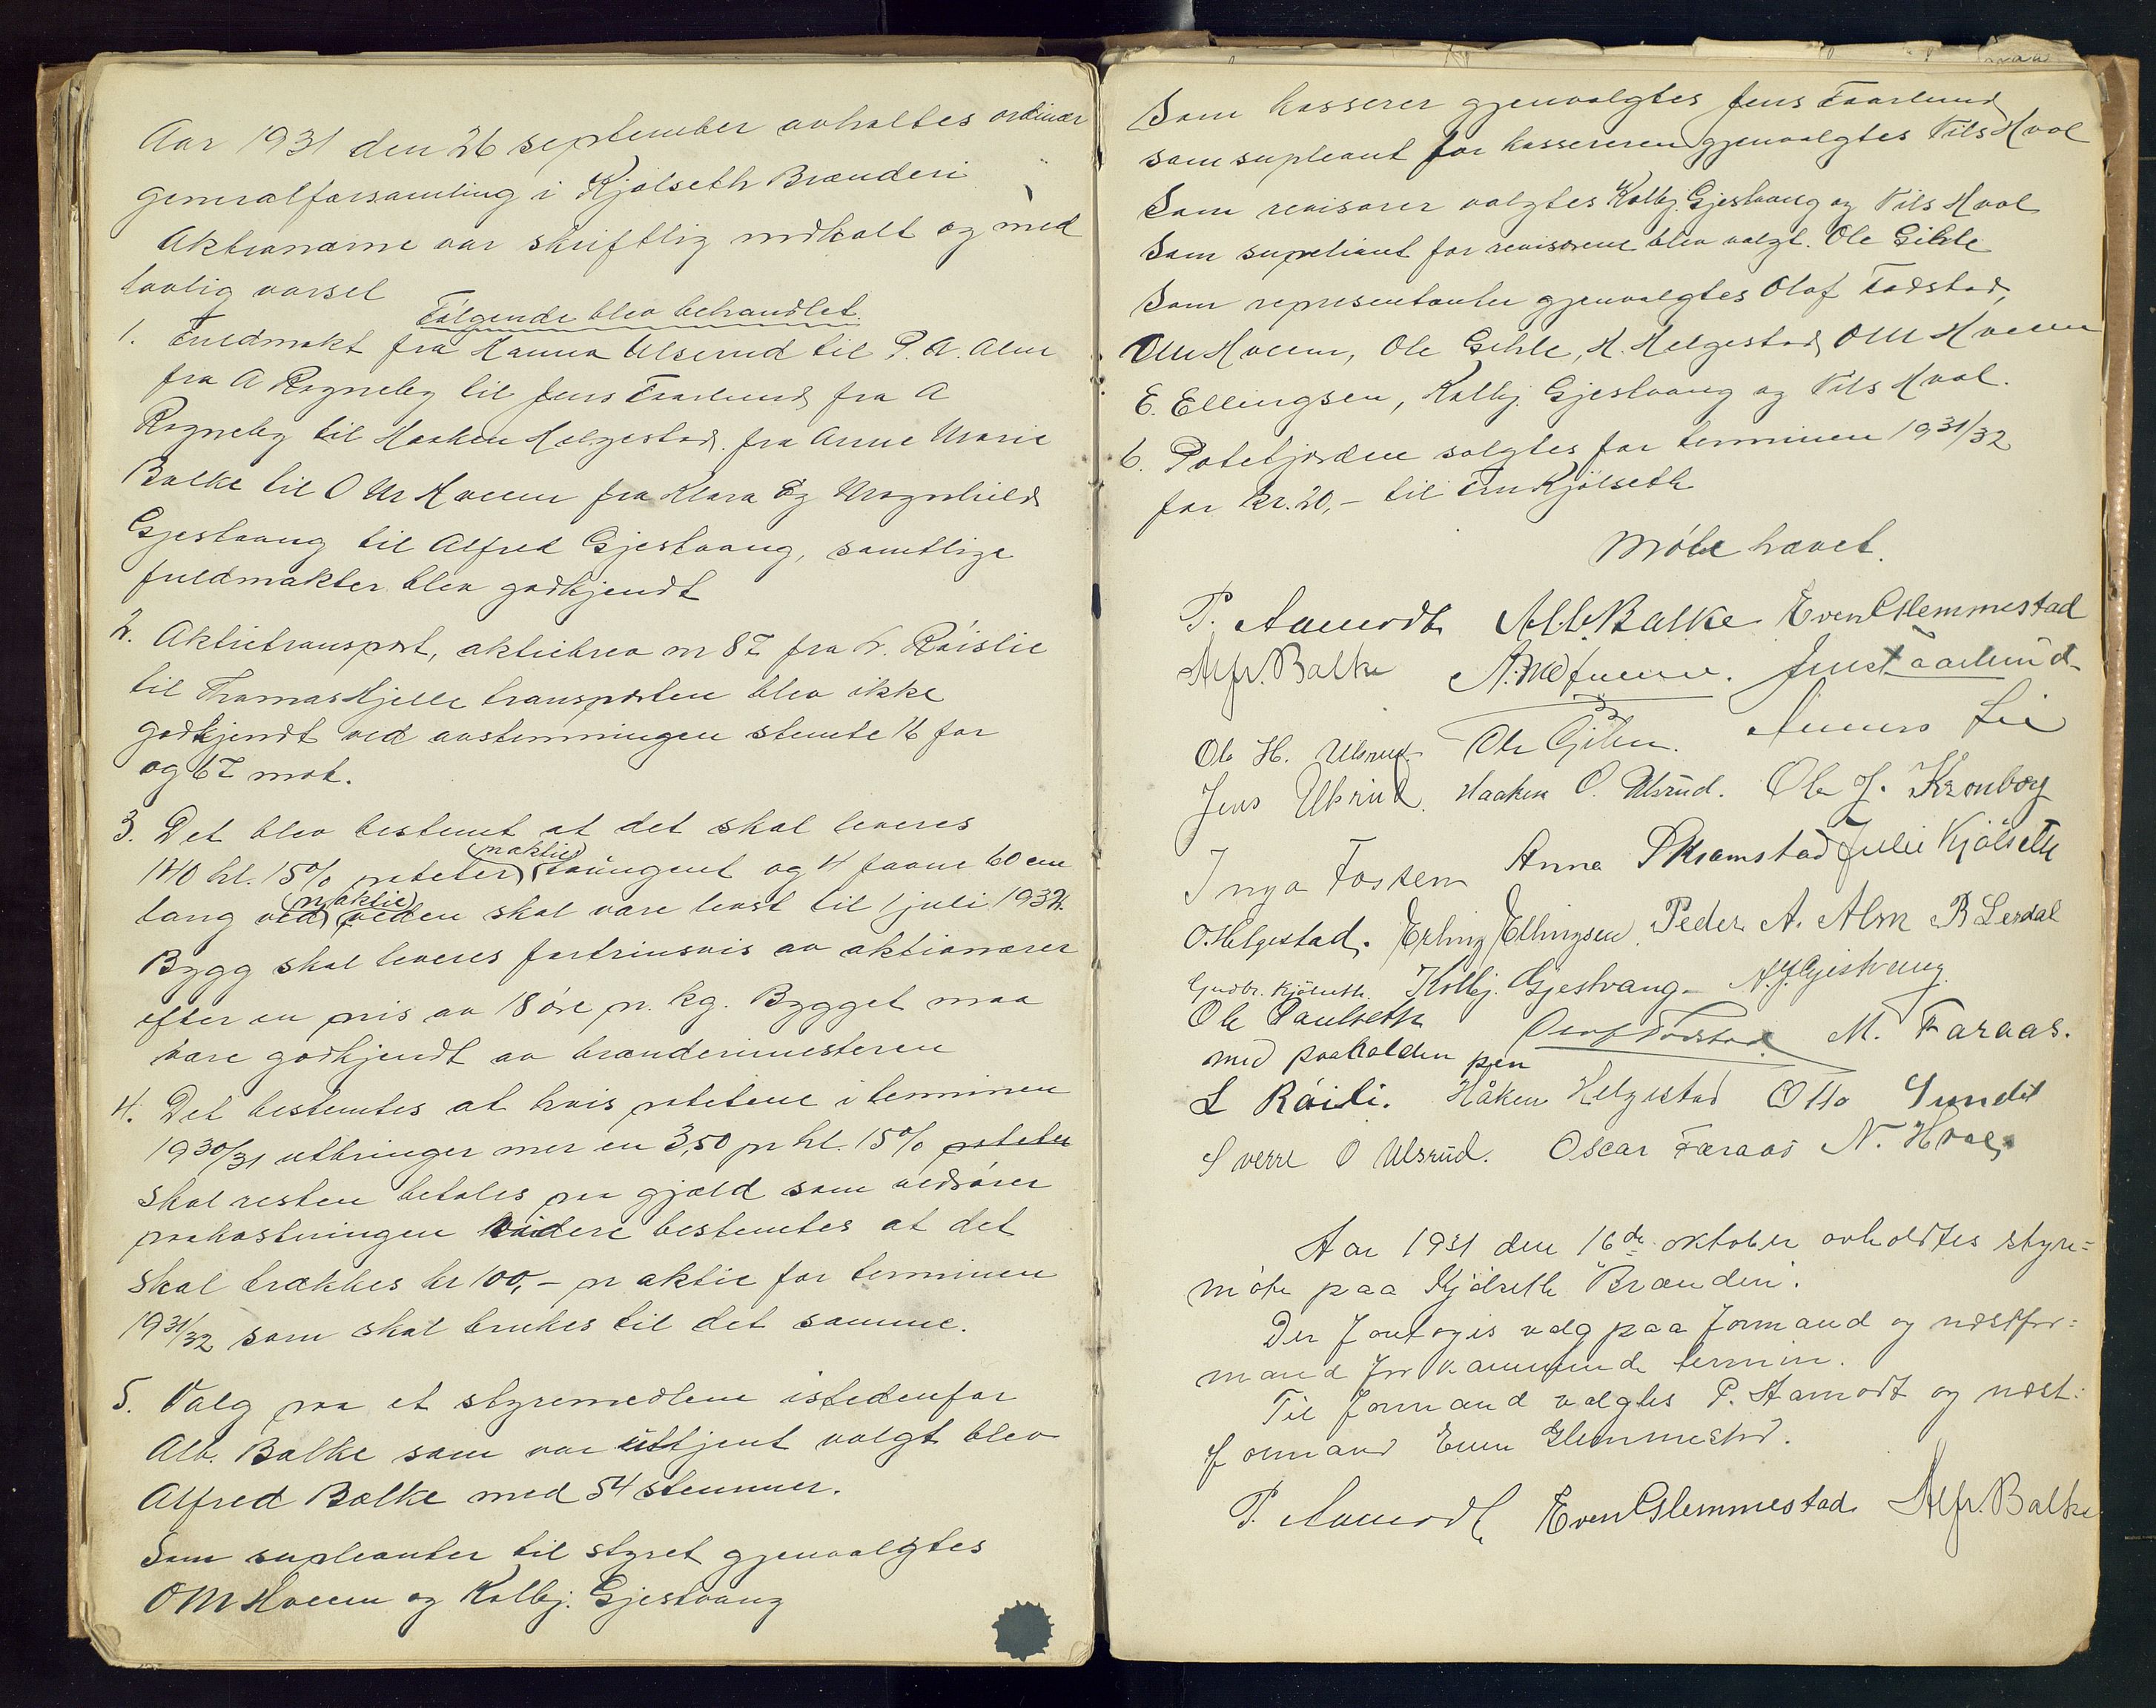 Aar 1931 den 26 september avholtes ordinær
generalforsamling i Kjølseth Brænderi
Aktionærne var skriftlig indkalt og med
lovlig varsel
Følgende blev behandlet.
1. Fuldmakt fra Hanna Ulserud til P. A. Alm
fra A Rogneby til Jens Faarlund fra A
Rogneby til Haaken Helgestad. fra Anne Marie
Balke til O M Hveem fra Klara og Magnhild
Gjestvang til Alfred Gjestvang, samtlige
fuldmakter blev godkjendt
2. Aktietransport, aktiebrev nr 87 fra L. Røislie
til Thomas Hjelle transporten blev ikke
godkjendt ved avstemningen stemte 16 for
og 67 mot.
3. Det blev bestemt at det skal leveres
140 hl. 15% poteter (pr aktie) tvungent og 4 favne 60 cm
lang ved (pr aktie) veden skal være levert til 1 juli 1932.
Bygg skal leveres fortrinsvis av aktionærer
efter en pris av 18 øre pr. kg. Bygget maa
være godkjendt av brænderimesteren
4. Det bestemtes at hvis potetene i terminen
1930/31 utbringer mer en 3,50 pr hl. 15% poteter
skal resten betales paa gjæld som vedrører
paakostningen videre bestemtes at det
skal trækkes kr 100,- pr aktie for terminen
1931/32 som skal brukes til det samme.
5. Valg paa et styremedlem istedenfor
Alb. Balke som var uttjent valgt blev
Alfred Balke med 54 stemmer.
Som supleanter til styret gjenvalgtes
O M Hveem og Kolbj. Gjestvang
Som kasserer gjenvalgtes Jens Faarlund
som supleant for kassereren gjenvalgtes Nils Hval
Som revisorer valgtes Kolbj. Gjestvang og Nils Hval
Som supeliant for revisorene blev valgt. Ole Gihle
Som representanter gjenvalgtes Olaf Fodstad,
O M Hveem, Ole Gihle, H. Helgestad, O M Hveem
E. Ellingsen, Kolbj. Gjestvang og Nils Hval.
6. Potetjorden solgtes for terminen 1931/32
for kr. 20,- til Fru Kjølseth
Møte hævet.
P. Aamodt Alb. Balke Even Glemmestad
Alfr. Balke Jens Faarlund
Ole H. Ulsrud. Ole Gihle. Lie
Jens Ulsrud. Haaken O. Ulsrud. Ole J. Kronborg
Inga Fossem Anna Skramstad Julie Kjølseth
O. Helgestad. Erling Ellingsen. Peder A. Alm B Lerdal
Gudbr. Kjølseth. Kolbj. Gjestvang. A. J. Gjestvang.
Ole Paulseth Olaf Fodstad. M. Faraas.
med paaholden pen
L Røisli. Håken Helgestad Otto Sundet
Sverre O Ulsrud. Oscar Faraas N. Hval.
Aar 1931 den 16de oktober avholdtes styre=
møte paa Kjølseth Brænderi.
Der foretoges valg paa formand og næstfor=
mand for kommende termin.
Til formand valgtes P. Aamodt og næst:
formand Even Glemmestad.
P. Aamodt Even Glemmestad Alfr. Balke